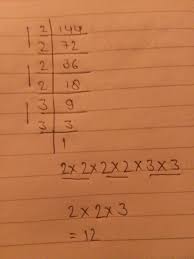 2 | 144
2 | 72
2 | 36
2 | 18
3 | 9
3 | 3
1
2×2×2×2×3×3
2×2×3
=12